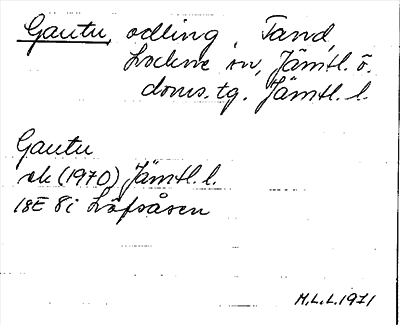 Gautu, odling, Tand,
Lockne sn, Jämtl. ö.
doms. tg. Jämtl. l.
Gautu
ek (1970) Jämtl. l.
18E 8i Löfsåsen
M.L.L. 1971